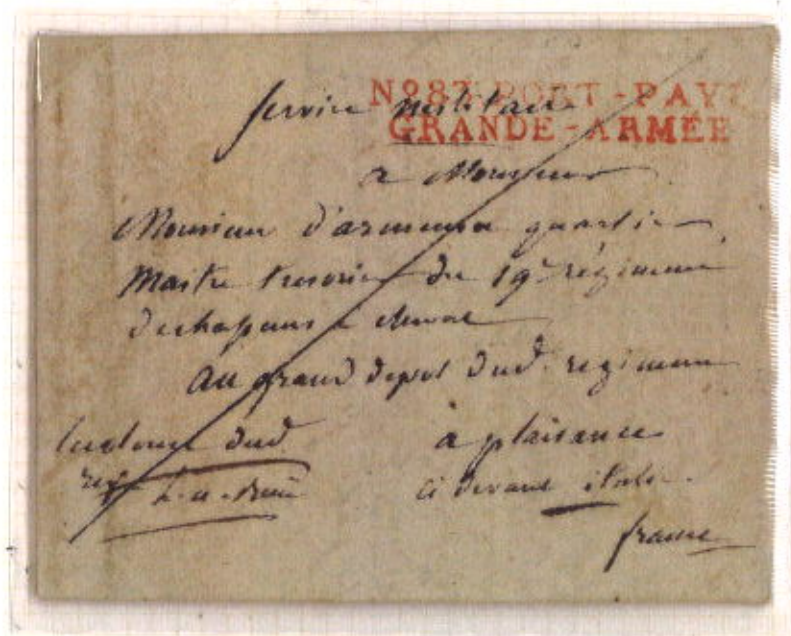 No 87 PORT-PAYÉ
GRANDE-ARMÉE
Service militaire
a Monsieur
Monsieur quartier
Maitre tresorier du 19e régiment
de chasseurs a cheval
Au grand depot dud. regiment
dud.
reg.
à plaisance
ci devant italie.
france